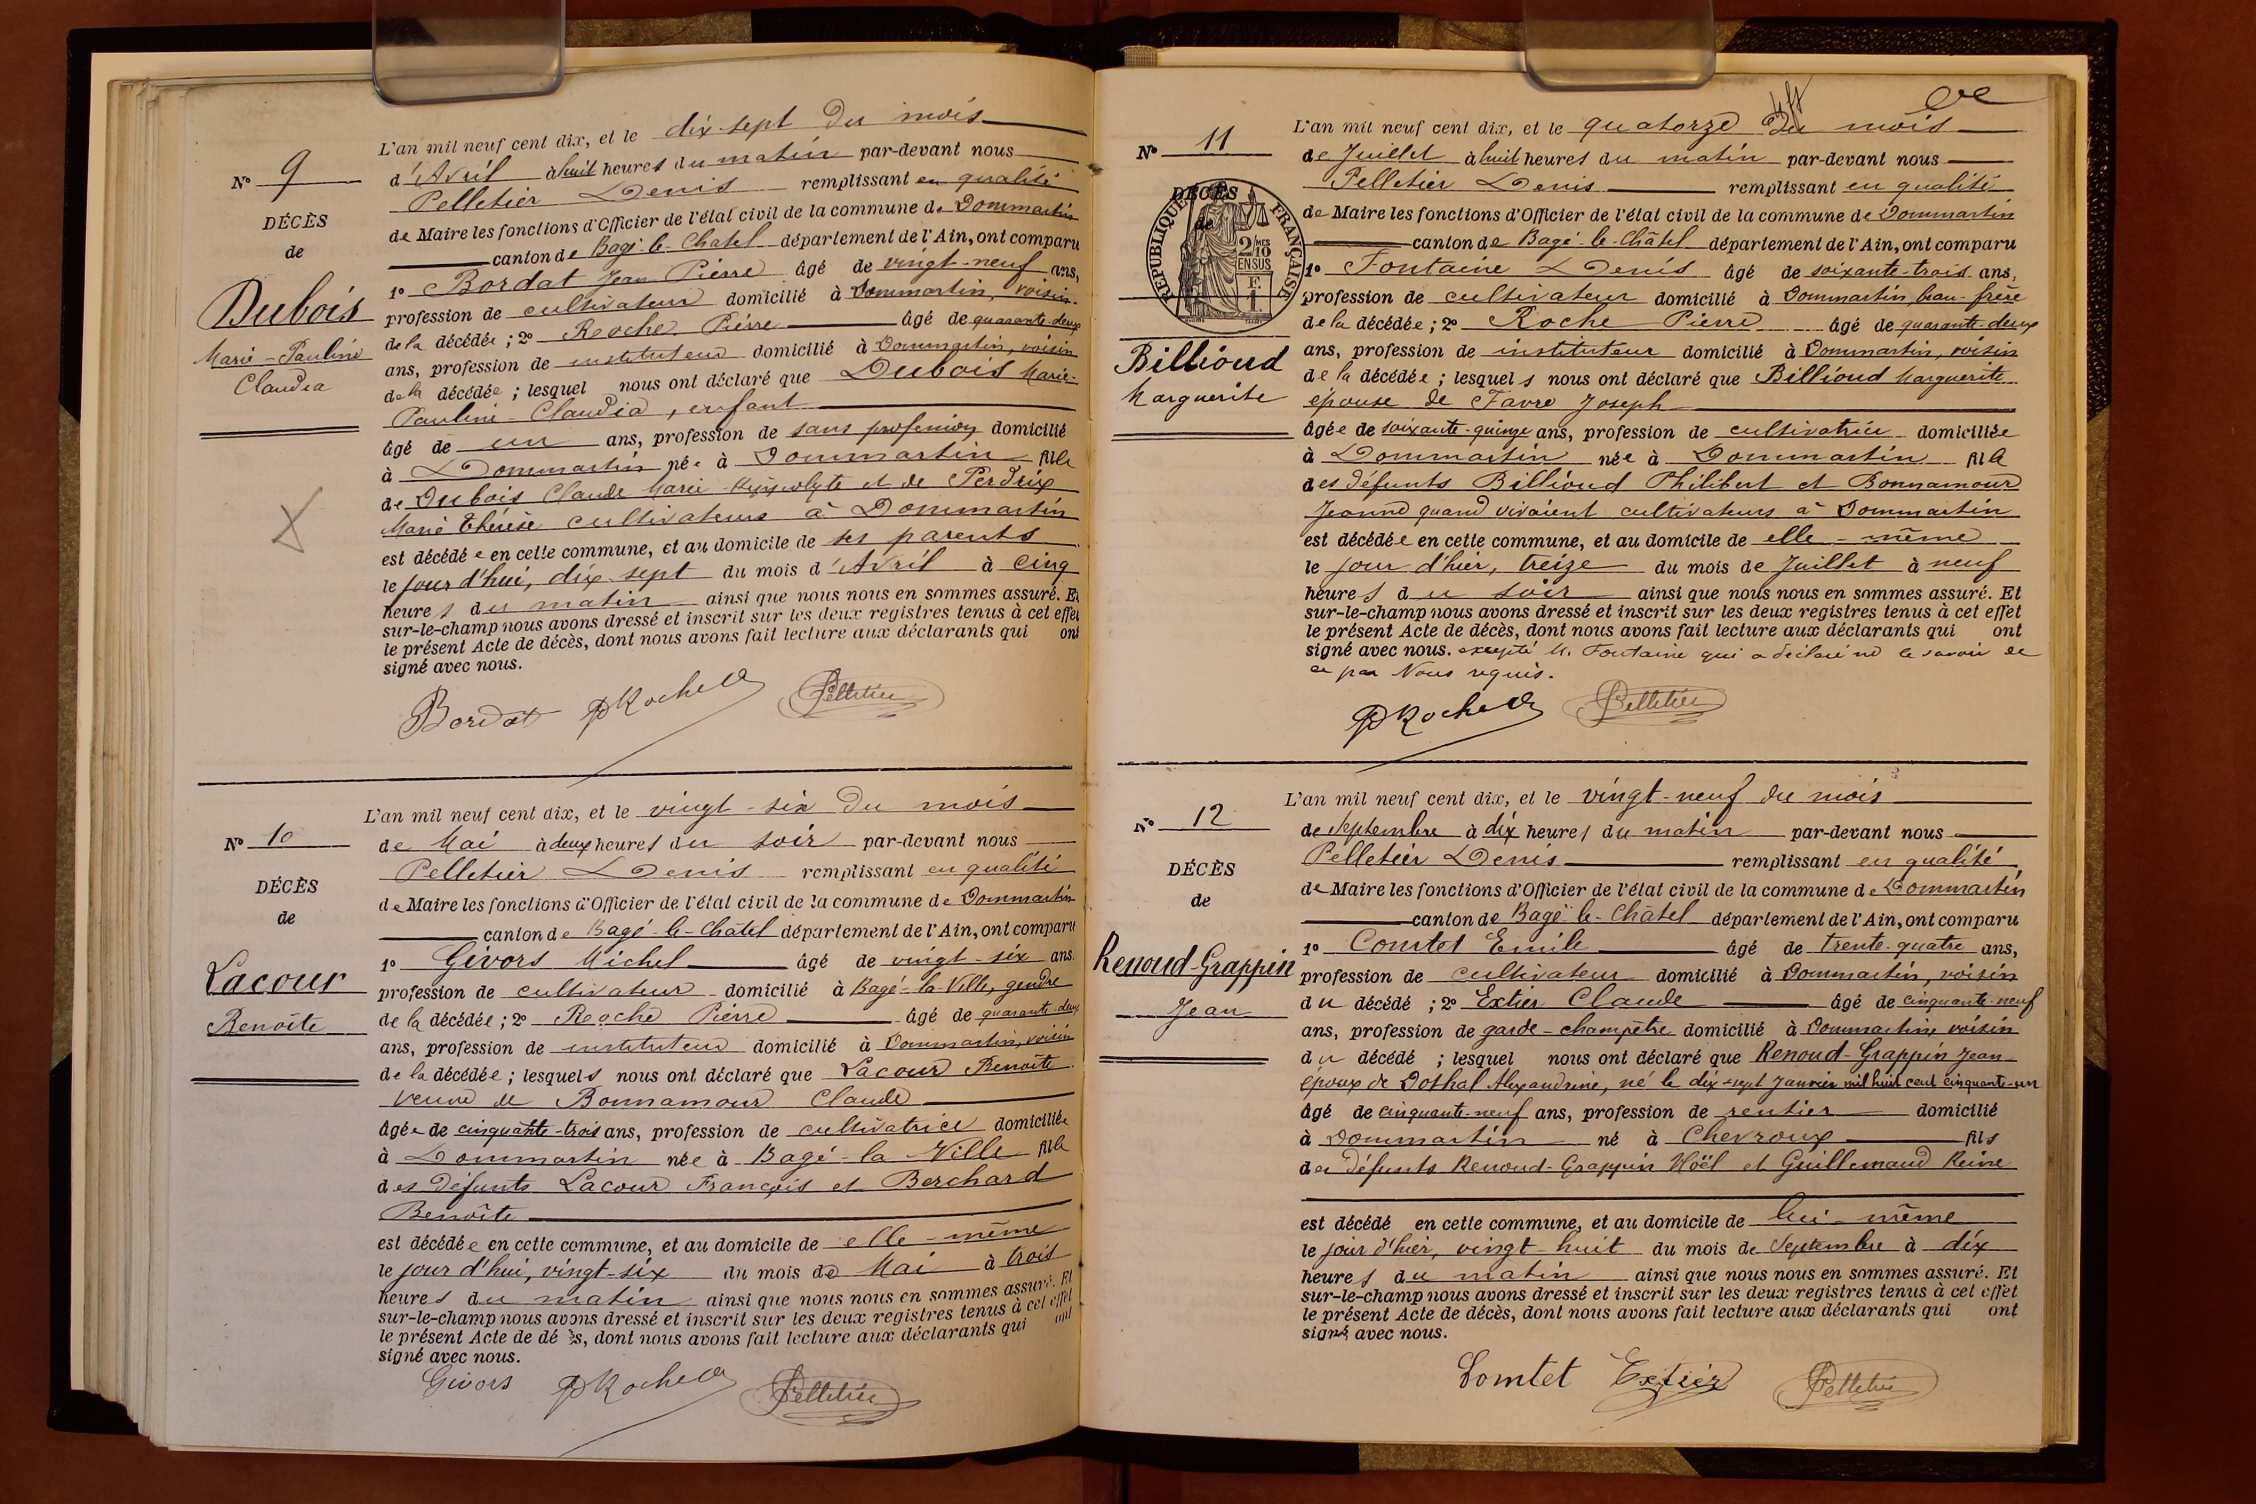 L'an mil neuf cent dix, et le dix-sept du mois
N° 9
d'Avril à huit heures du matin par-devant nous
Pelletier Denis remplissant en qualité
DÉCÈS
de Maire les fonctions d'Officier de l'état civil de la commune de Dommartin
de
canton de Bagé-le-Châtel département de l'Ain, ont comparu
1° Bordat Jean Pierre âgé de vingt-neuf ans,
Dubois
profession de cultivateur domicilié à Dommartin, voisin
de la décédée; 2° Roche Pierre âgé de quarante-deux
Marie-Pauline
ans, profession de instituteur domicilié à Dommartin, voisin
Claudia
de la décédée; lesquel nous ont déclaré que Dubois Marie-
Pauline-Claudia, enfant
âgé de un ans, profession de sans profession domicilié
à Dommartin née à Dommartin fille
de Dubois Claude Marie Hyppolyte et de Perdrix
Marie Thérèse cultivateurs à Dommartin
est décédée en cette commune, et au domicile de ses parents
le jour d'hui, dix-sept du mois d'Avril à cinq
heures du matin ainsi que nous nous en sommes assuré. Et
sur-le-champ nous avons dressé et inscrit sur les deux registres tenus à cet effet
le présent Acte de décès, dont nous avons fait lecture aux déclarants qui ont
signé avec nous.
Bordat PRoche Pelletier
L'an mil neuf cent dix, et le vingt-six du mois
N° 10
de Mai à deux heures du soir par-devant nous
Pelletier Denis remplissant en qualité
DÉCÈS
de Maire les fonctions d'Officier de l'état civil de la commune de Dommartin
de
canton de Bagé-le-Châtel département de l'Ain, ont comparu
1° Givors Michel âgé de vingt-six ans
Lacour
profession de cultivateur domicilié à Bagé-la-Ville, gendre
Benoîte
de la décédée; 2° Roche Pierre âgé de quarante-deux
ans, profession de instituteur domicilié à Dommartin, voisin
de la décédée; lesquels nous ont déclaré que Lacour Benoîte
veuve de Bonnamour Claude
âgée de cinquante-trois ans, profession de cultivatrice domiciliée
à Dommartin née à Bagé-la-Ville fille
des défunts Lacour François et Berchard
Benoîte
est décédée en cette commune, et au domicile de elle-même
le jour d'hui, vingt-six du mois de Mai à trois
heures du matin ainsi que nous nous en sommes assuré. Et
sur-le-champ nous avons dressé et inscrit sur les deux registres tenus à cet effet
le présent Acte de décès, dont nous avons fait lecture aux déclarants qui ont
signé avec nous.
Givors PRoche Pelletier
L'an mil neuf cent dix, et le quatorze du mois
N° 11
de Juillet à huit heures du matin par-devant nous
DÉCÈS
de
RÉPUBLIQUE FRANÇAISE
2/10 MES
EN SUS
1 F.
Pelletier Denis remplissant en qualité
de Maire les fonctions d'Officier de l'état civil de la commune de Dommartin
canton de Bagé-le-Châtel département de l'Ain, ont comparu
1° Fontaine Denis âgé de soixante-trois ans,
profession de cultivateur domicilié à Dommartin, beau-frère
de la décédée; 2° Roche Pierre âgé de quarante-deux
Billioud
ans, profession de instituteur domicilié à Dommartin, voisin
de la décédée; lesquels nous ont déclaré que Billioud Marguerite
Marguerite
épouse de Favre Joseph
âgée de soixante-quinze ans, profession de cultivatrice domiciliée
à Dommartin née à Dommartin fille
des défunts Billioud Philibert et Bonnamour
Jeanne quand vivaient cultivateurs à Dommartin
est décédée en cette commune, et au domicile de elle-même
le jour d'hier, treize du mois de Juillet à neuf
heures du soir ainsi que nous nous en sommes assuré. Et
sur-le-champ nous avons dressé et inscrit sur les deux registres tenus à cet effet
le présent Acte de décès, dont nous avons fait lecture aux déclarants qui ont
signé avec nous. excepté M. Fontaine qui a déclaré ne le savoir de
ce par Nous requis.
PRoche Pelletier
L'an mil neuf cent dix, et le vingt-neuf du mois
N° 12
de Septembre à dix heures du matin par-devant nous
Pelletier Denis remplissant en qualité
DÉCÈS
de Maire les fonctions d'Officier de l'état civil de la commune de Dommartin
de
canton de Bagé-le-Châtel département de l'Ain, ont comparu
1° Comtet Emile âgé de trente-quatre ans,
Renoud-Grappin
profession de cultivateur domicilié à Dommartin, voisin
Jean
du décédé; 2° Extier Claude âgé de cinquante-neuf
ans, profession de garde-champêtre domicilié à Dommartin, voisin
du décédé; lesquel nous ont déclaré que Renoud-Grappin Jean
époux de Dothal Alexandrine, né le dix-sept Janvier mil huit cent cinquante-un
âgé de cinquante-neuf ans, profession de rentier domicilié
à Dommartin né à Chevroux fils
des défunts Renoud-Grappin Noël et Guillemaud Reine
est décédé en cette commune, et au domicile de lui-même
le jour d'hier, vingt-huit du mois de Septembre à dix
heures du matin ainsi que nous nous en sommes assuré. Et
sur-le-champ nous avons dressé et inscrit sur les deux registres tenus à cet effet
le présent Acte de décès, dont nous avons fait lecture aux déclarants qui ont
signé avec nous.
Comtet Extier Pelletier